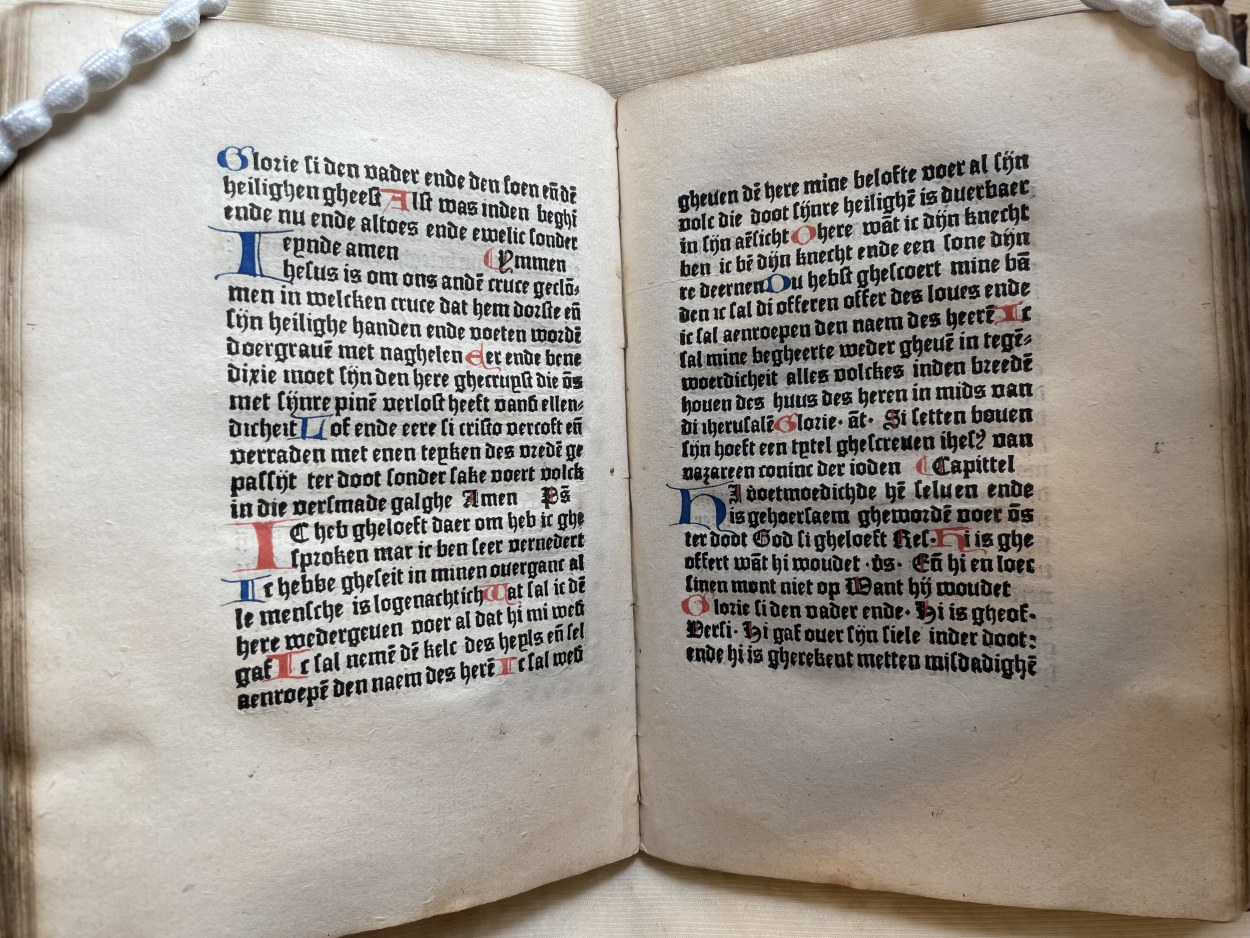 Glorie si den vader ende den soen eñ dē
heilighen gheest Alst was inden beghī
ende nu ende altoes ende ewelic sonder
eynde amen Ymmen
Ihesus is om ons andē cruce geclō⸗
men in welcken cruce dat hem dorste eñ
sijn heilighe handen ende voeten wordē
doergrauē met naghelen Eer ende bene
dixie moet sijn den here ghecruyst die ōs
met sijnre pinē verlost heeft vanð ellen⸗
dicheit Lof ende eere si cristo vercoft eñ
verraden met enen teyken des vredē ge
passijt ter doot sonder sake voert volck
in die versmade galghe Amen Ps̄
IC heb gheloeft daer om heb ic ghe
sproken mar ic ben seer vernedert
Ic hebbe gheseit in minen ouerganc al
le mensche is logenachtich Wat sal ic dē
here wedergeuen voer al dat hi mi west
gaf Ic sal nemē dē kelc des heyls eñ sel
aenroepē den naem des herē Ic sal west
gheuen dē here mine belofte voer al sijn
volc die doot sijnre heilighē is duerbaer
in sijn āsicht O here wāt ic dijn knecht
ben ic bē dijn knecht ende een sone dijn
re deernen Du hebst ghescoert mine bā
den ic sal di offeren offer des loues ende
ic sal aenroepen den naem des heerē Ic
sal mine begheerte weder gheuē in tegē⸗
woerdicheit alles volckes inden breedē
houen des huus des heren in mids van
di iherusalē Glorie· āt· Si setten bouen
sijn hoeft een tytel ghescreuen ihesꝰ van
nazareen coninc der ioden Capittel
HI voetmoedichde hē seluen ende
is gehoersaem ghewordē voer ōs
ter doot God si gheloeft Res· Hi is ghe
offert wāt hi woudet ·ðs· Eñ hi en loec
sinen mont niet op Want hij woudet
Glorie si den vader ende· Hi is gheof·
Versi· Hi gaf ouer sijn siele inder doot:
ende hi is gherekent metten misdadighē